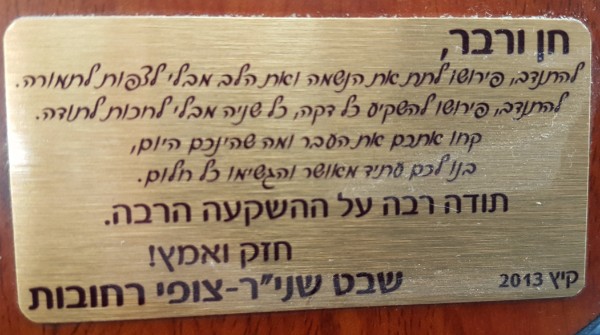 חן ורבר,
להתנדב, פירושו לתת את הנשמה ואת הלב מבלי לצפות לתמורה.
להתנדב, פירושו להשקיע כל דקה, כל שניה מבלי לחכות לתודה.
קחו אתכם את העבר ומה שהינכם היום,
בנו לכם עתיד מאושר והגשימו כל חלום.
תודה רבה על ההשקעה הרבה.
חזק ואמץ!
שבט שני"ר-צופי רחובות
קיץ 2013